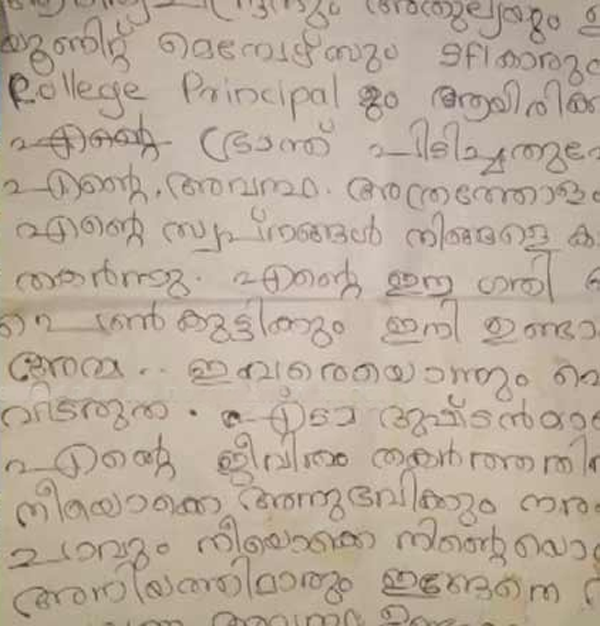 യൂണിറ്റ് മെമ്പേഴ്സും SFI കാരും
College Principal ളും ആയിരിക്ക
എന്റെ ഭ്രാന്ത് പിടിച്ചതുപോ
എന്റെ. അവസ്ഥ. അത്രത്തോളം
എന്റെ സ്വപ്നങ്ങൾ നിങ്ങളെ ക
തകർന്നു. എന്റെ ഈ ഗതി
പെൺകുട്ടിക്കും ഇനി ഉണ്ടാ
ഇവരെയൊന്നും വെ
വിടരുത. എടാ ദുഷ്ടൻമാ
എന്റെ ജീവിതം തകർത്തതിന
നീയൊക്കെ അനുഭവിക്കും നര
ചാവും നീയൊക്കെ നിന്റെയൊ
അനിയത്തിമാരും ഇങ്ങേനെ